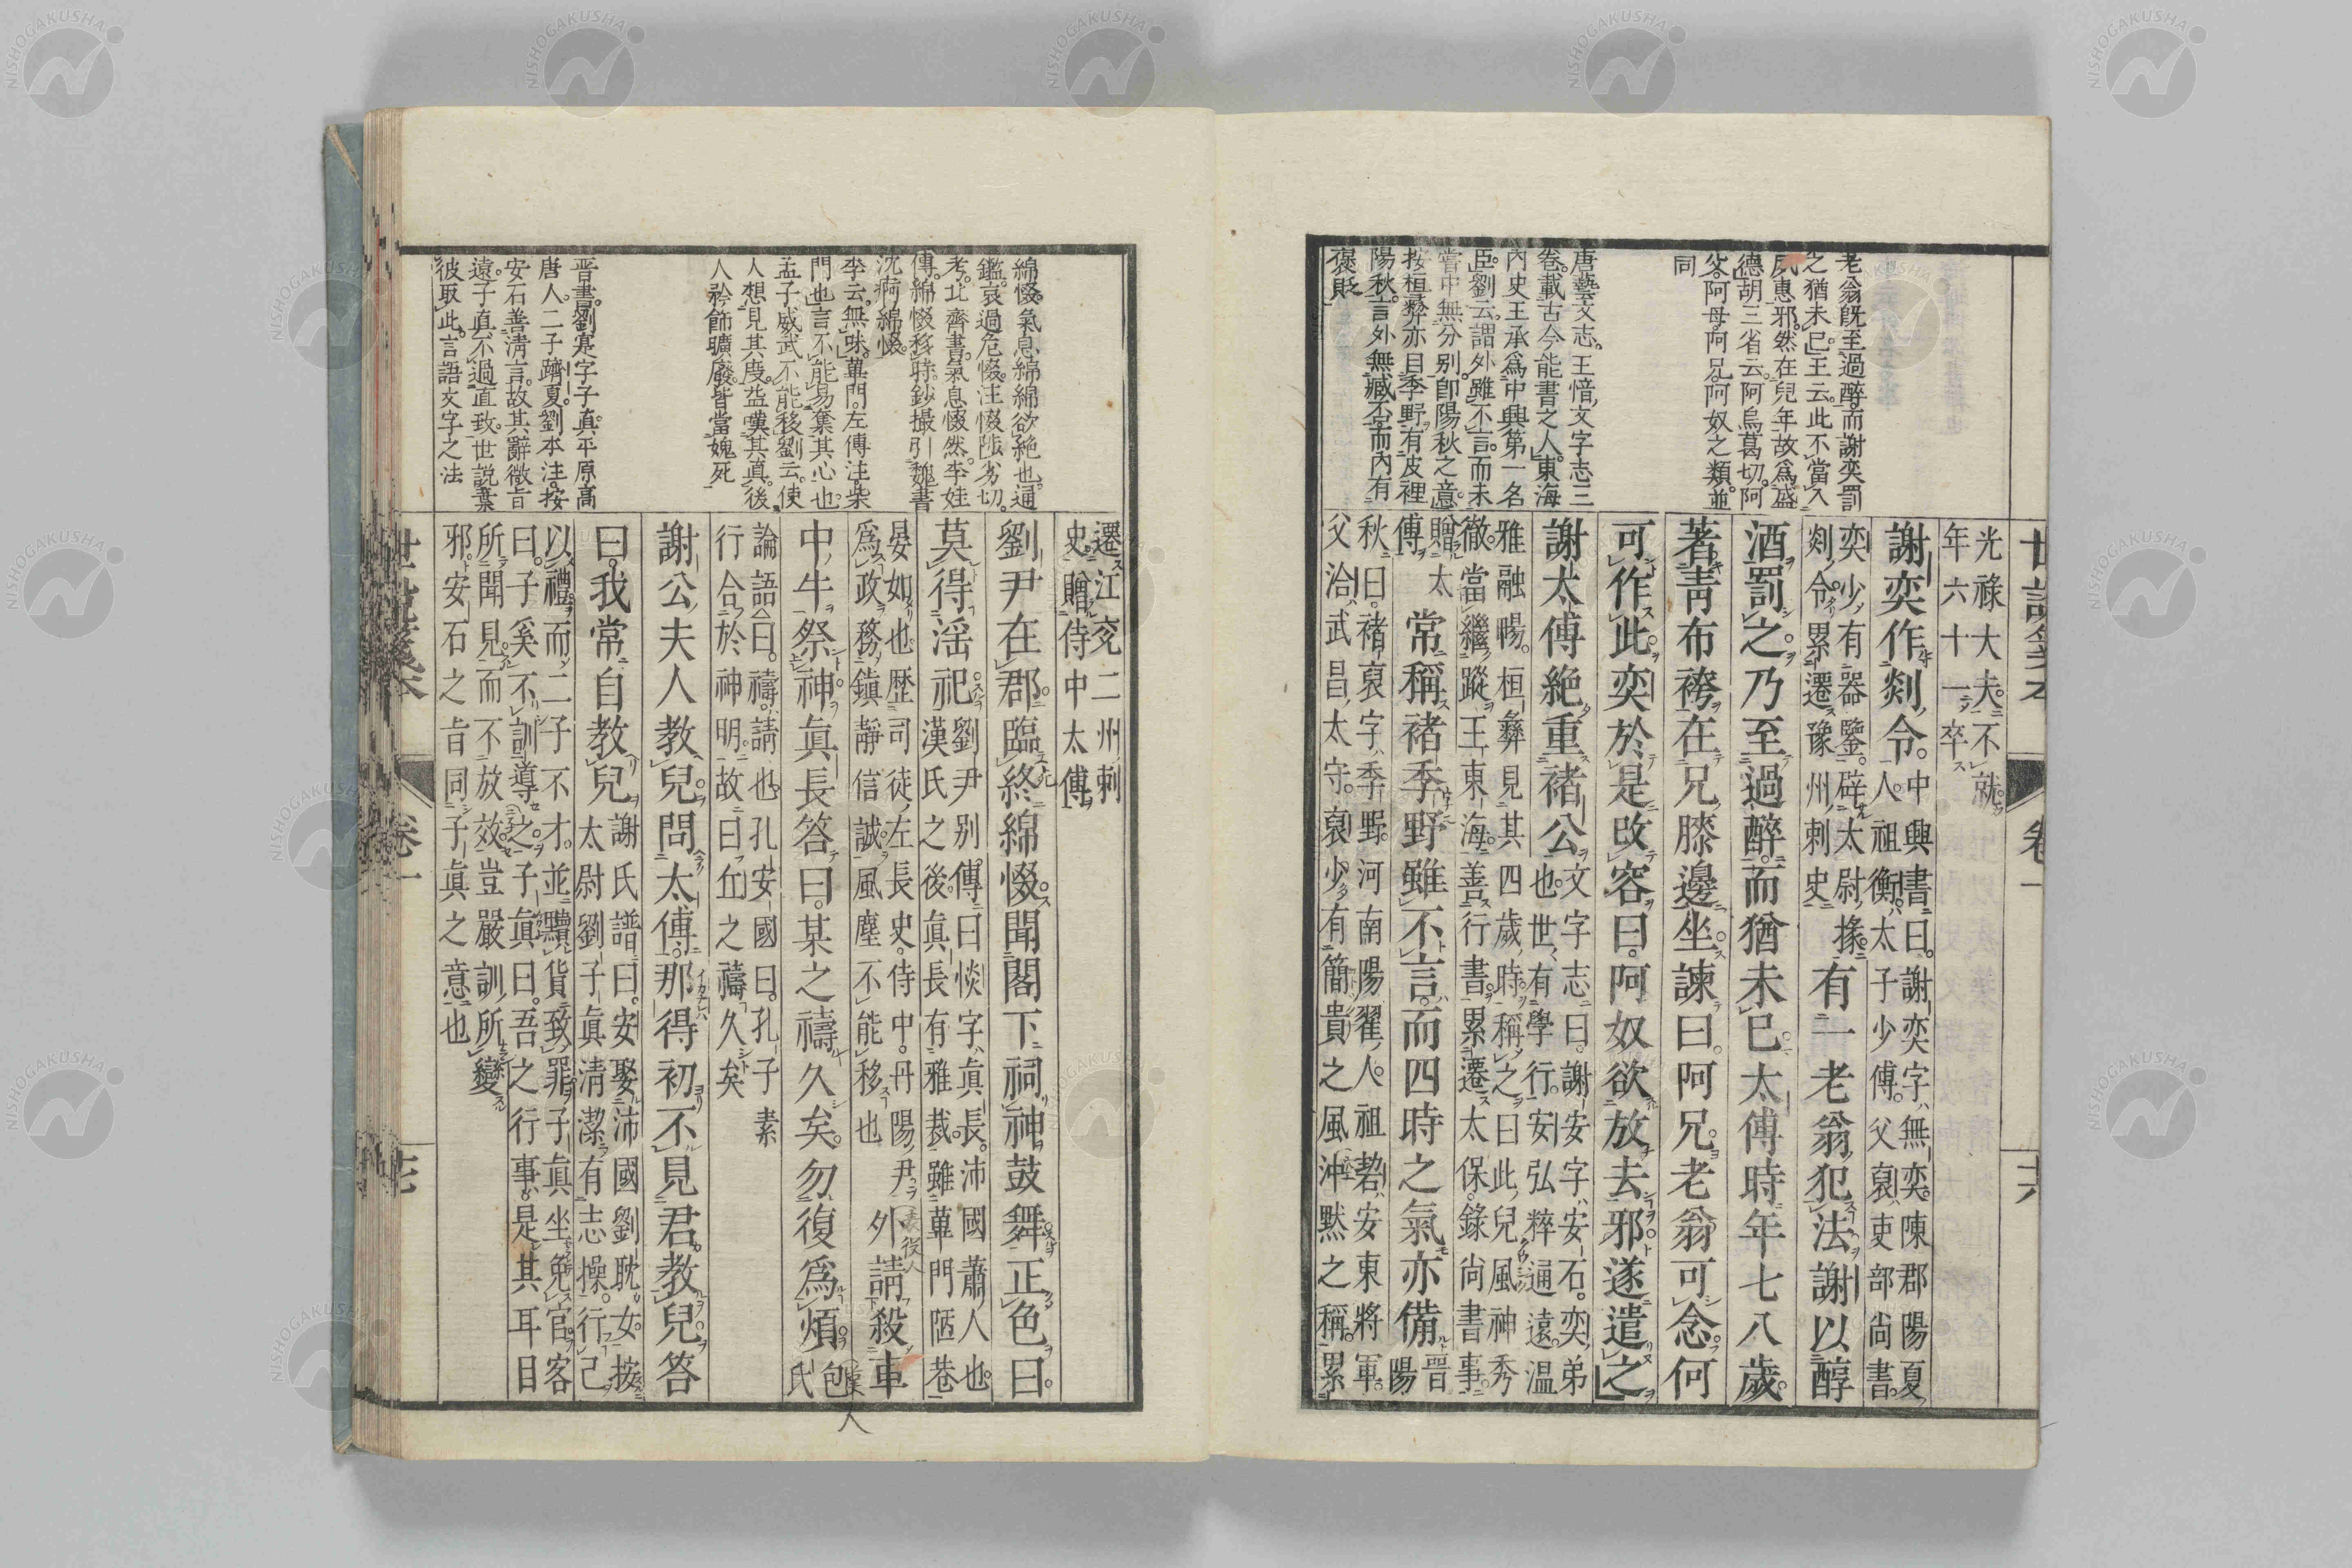 世説箋本 卷一 十六
老翁既至過醉而謝奕罰
之猶未已王云此不當入
夙惠邪然在兒年故爲盛
德胡三省云阿烏葛切阿
父阿母阿兄阿奴之類並
同
唐藝文志王愔文字志三
卷載古今能書之人東海
内史王承爲中興第一名
臣劉云謂外雖不言而未
嘗中無分别卽陽秋之意
按桓彝亦目季野有皮裡
陽秋言外無臧否而内有
褒貶
光祿大夫不就
年六十一卒
謝奕作剡令
中興書曰謝奕字無奕陳郡陽夏
人祖衡太子少傅父裒吏部尚書
奕少有器鑒辟太尉掾
剡令累遷豫州刺史
有一老翁犯法謝以醇
酒罰之乃至過醉而猶未已太傅時年七八歲
著青布袴在兄膝邊坐諫曰阿兄老翁可念何
可作此奕於是改容曰阿奴欲放去邪遂遣之
謝太傅絶重褚公
文字志曰謝安字安石奕弟
也世有學行安弘粹通遠溫
雅融暢桓彝見其四歲時稱之曰此兒風神秀
徹當繼蹤王東海善行書累遷太保錄尚書事
贈太
傅
常稱褚季野雖不言而四時之氣亦備
晉
陽
秋曰褚裒字季野河南陽翟人祖䂮安東將軍
父洽武昌太守裒少有簡貴之風沖默之稱累
綿惙氣息綿綿欲絶也通
鑑哀過危惙注惙陟劣切
考北齊書氣息惙然李娃
傳綿惙移時鈔撮引魏書
沈痾綿惙
李云無咪蓽門左傳注柴
門也言不能易棄其心也
孟子威武不能移劉云使
人想見其度益嘆其真後
人衿飾曠廢皆當媿死
晋書劉寔字子真平原高
唐人二子躋夏劉本注按
安石善淸言故其辭微旨
遠子真不過直致世説棄
彼取此言語文字之法
遷江兗二州刺
史贈侍中太傅
劉尹在郡臨終綿惙聞閣下祠神鼓舞正色曰
莫得淫祀
劉尹别傳曰惔字眞長沛國蕭人也
漢氏之後眞長有雅裁雖蓽門陋巷
晏如也歷司徒左長史侍中丹陽尹
爲政務鎭靜信誠風塵不能移也
外請殺車
中牛祭神眞長答曰某之禱久矣勿復爲煩
包
氏
論語曰禱請也孔安國曰孔子素
行合於神明故曰丘之禱久矣
謝公夫人教兒問太傅那得初不見君教兒答
曰我常自教兒
謝氏譜曰安娶沛國劉耽女按
太尉劉子眞淸潔有志操行己
以禮而二子不才並黷貨致罪子眞坐免官客
曰子奚不訓導之子眞曰吾之行事是其耳目
所聞見而不放效豈嚴訓所變
邪安石之旨同子眞之意也
世説箋本 卷一